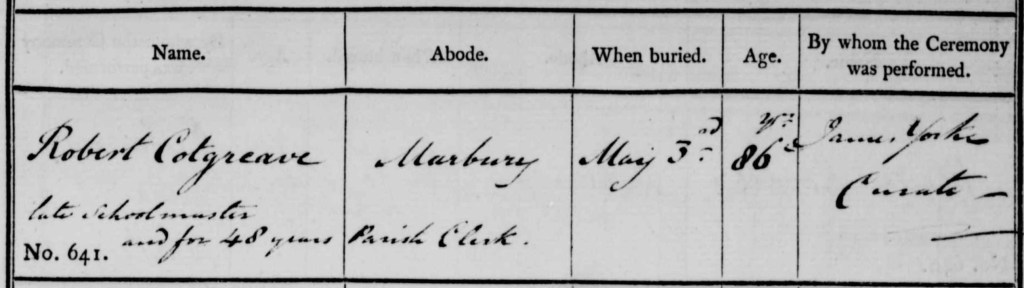 Name. Abode. When buried. Age. By whom the Ceremony was performed.
Robert Cotgreave Marbury May 3rd 86 yrs James Yorke
Curate
late Schoolmaster
No. 641. and for 48 years Parish Clerk.